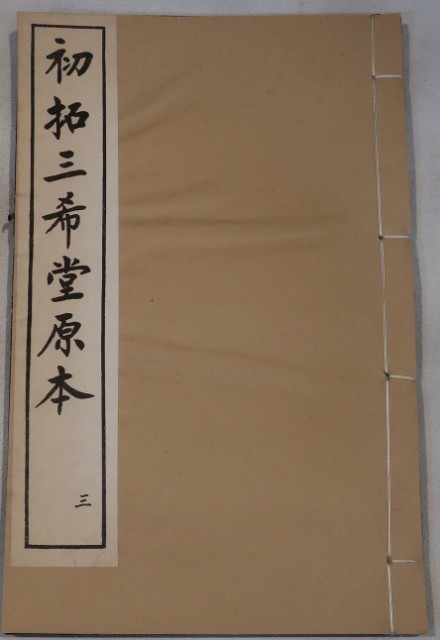 初拓三希堂原本
三